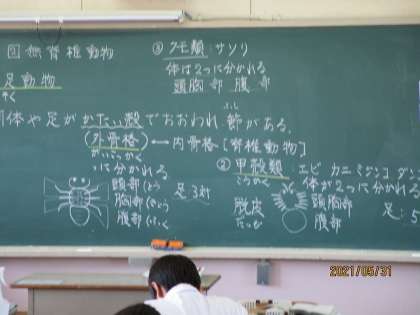 無脊椎動物
足動物
体や足がかたい殻でおおわれ節がある.
ふし
(外骨格)←→内骨格[脊椎動物]
がいこっかく
に分かれる
頭部
胸部
腹部
足3対
③クモ類 サソリ
体は2つに分かれる
頭胸部 腹部
②甲殻類 エビ カニ ミジンコ
こうかく
体が2つに分かれる
脱皮
だっぴ
頭胸部
腹部
足:5
2021/05/31